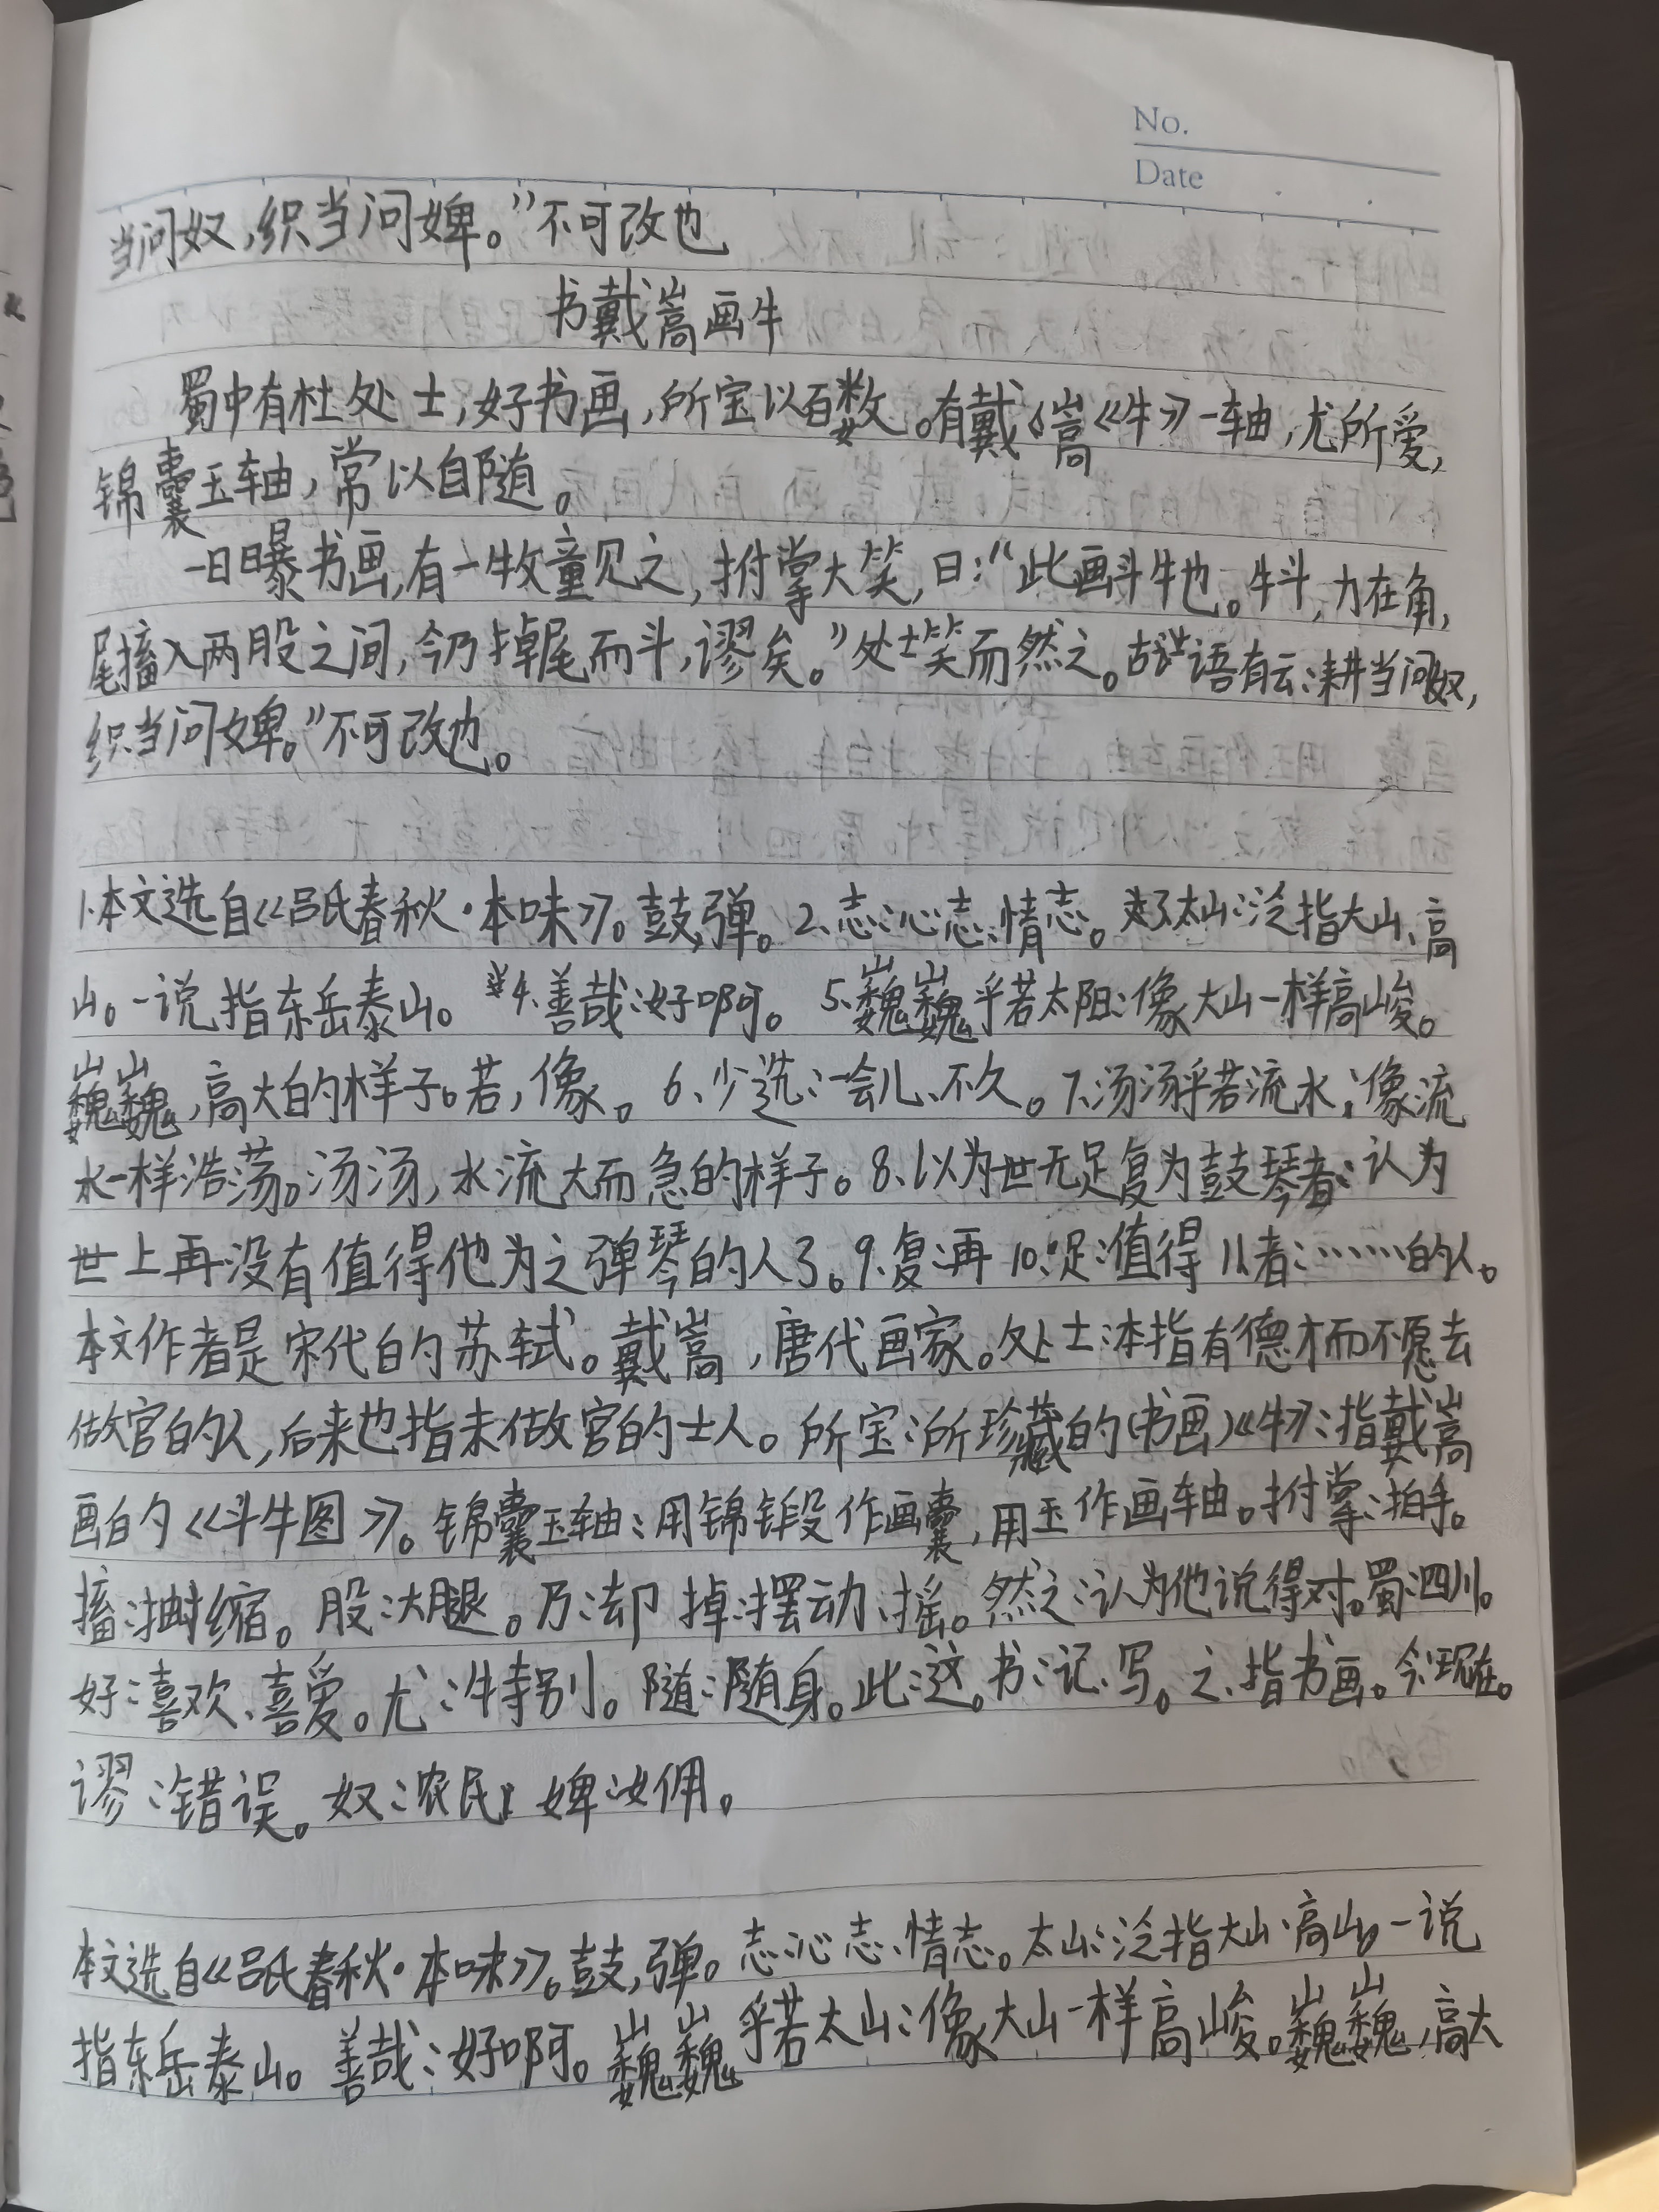 No.
Date
当问奴，织当问婢。”不可改也
书戴嵩画牛
蜀中有杜处士，好书画，所宝以百数。有戴嵩《牛》一轴，尤所爱，
锦囊玉轴，常以自随。
一日曝书画，有一牧童见之，拊掌大笑，曰：“此画斗牛也。牛斗，力在角，
尾搐入两股之间，今乃掉尾而斗，谬矣。”处士笑而然之。古语有云：耕当问奴，
织当问婢。”不可改也。
1.本文选自《吕氏春秋·本味》。鼓，弹。2、志：心志、情志。太山：泛指大山、高
山。一说指东岳泰山。4、善哉：好啊。5、巍巍乎若太阳：像大山一样高峻。
巍巍，高大的样子。若，像。6、少选：一会儿、不久。7、汤汤乎若流水：像流
水一样浩荡。汤汤，水流大而急的样子。8、以为世无足复为鼓琴者：认为
世上再没有值得他为之弹琴的人了。9、复：再 10、足：值得 11、者：……的人。
本文作者是宋代的苏轼。戴嵩，唐代画家。处士：本指有德才而不愿去
做官的人，后来也指未做官的士人。所宝：所珍藏的（书画）《牛》：指戴嵩
画的《斗牛图》。锦囊玉轴：用锦锻作画囊，用玉作画轴。拊掌：拍手。
搐：抽缩。股：大腿。乃：却 掉：摆动、摇。然之：认为他说得对。蜀：四川。
好：喜欢、喜爱。尤：特别。随：随身。此：这。书：记、写。之、指书画。今：现在。
谬：错误。奴：农民 婢：女佣。
本文选自《吕氏春秋·本味》。鼓，弹。志：心志、情志。太山：泛指大山、高山。一说
指东岳泰山。善哉：好啊。巍巍乎若太山：像大山一样高峻。巍巍，高大